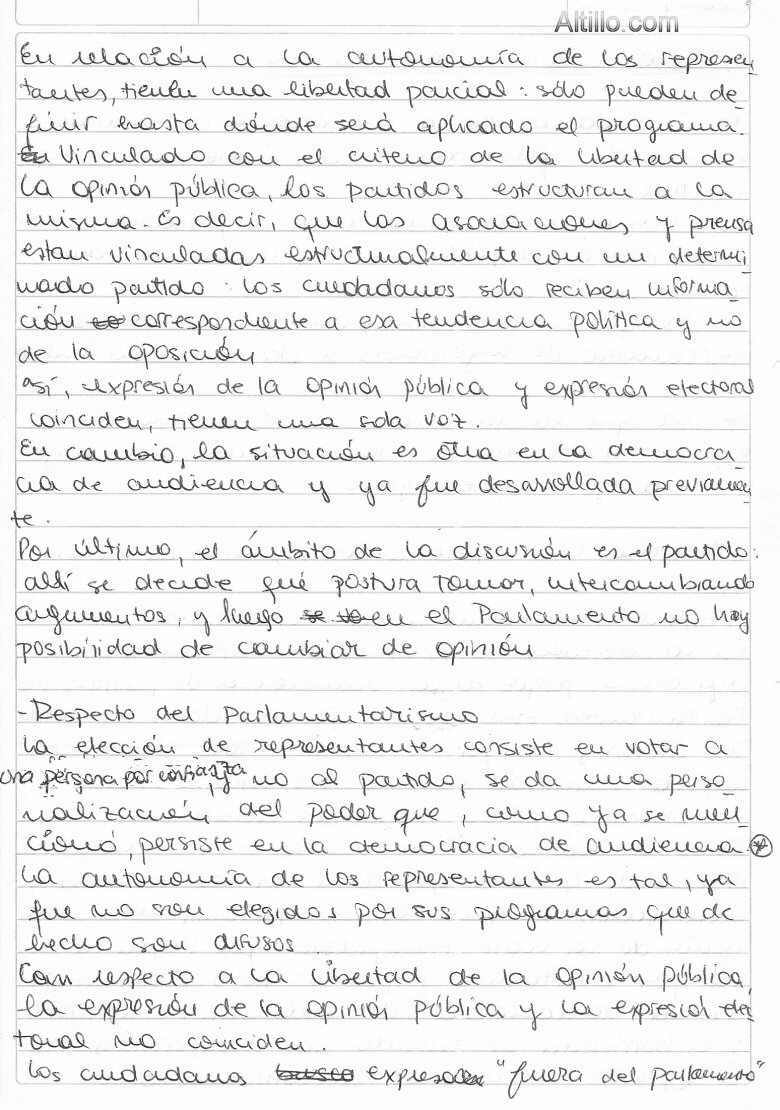 Altillo.com
En relación a la autonomía de los represen
tantes, tienen una libertad parcial: sólo pueden de_
finir hasta dónde será aplicado el programa.
En Vinculado con el criterio de la libertad de
la opinión pública, los partidos estructuran a la
misma. Es decir, que las asociaciones y prensa
estan vinculadas estructuralmente con un determi_
nado partido: los ciudadanos sólo reciben informa_
ción correspondiente a esa tendencia política y no
de la oposición.
así, expresión de la opinión pública y expresión electoral
coinciden, tienen una sola voz.
En cambio, la situación es otra en la democra_
cia de audiencia y ya fue desarrollada previamen
te.
Por último, el ámbito de la discusión es el partido:
allí se decide qué postura tomar, intercambiando
argumentos, y luego en el Parlamento no hay
posibilidad de cambiar de opinión
-Respecto del Parlamentarismo
La elección de representantes consiste en votar a
una persona por confianza no al partido, se da una perso_
nalización del poder que, como ya se men_
cionó, persiste en la democracia de audiencia. *
La autonomía de los representantes es tal, ya
que no son elegidos por sus programas que de
hecho son difusos.
Con respecto a la libertad de la opinión pública,
la expresión de la opinión pública y la expresión elec
toral no coinciden.
Los ciudadanos expresan "fuera del parlamento"